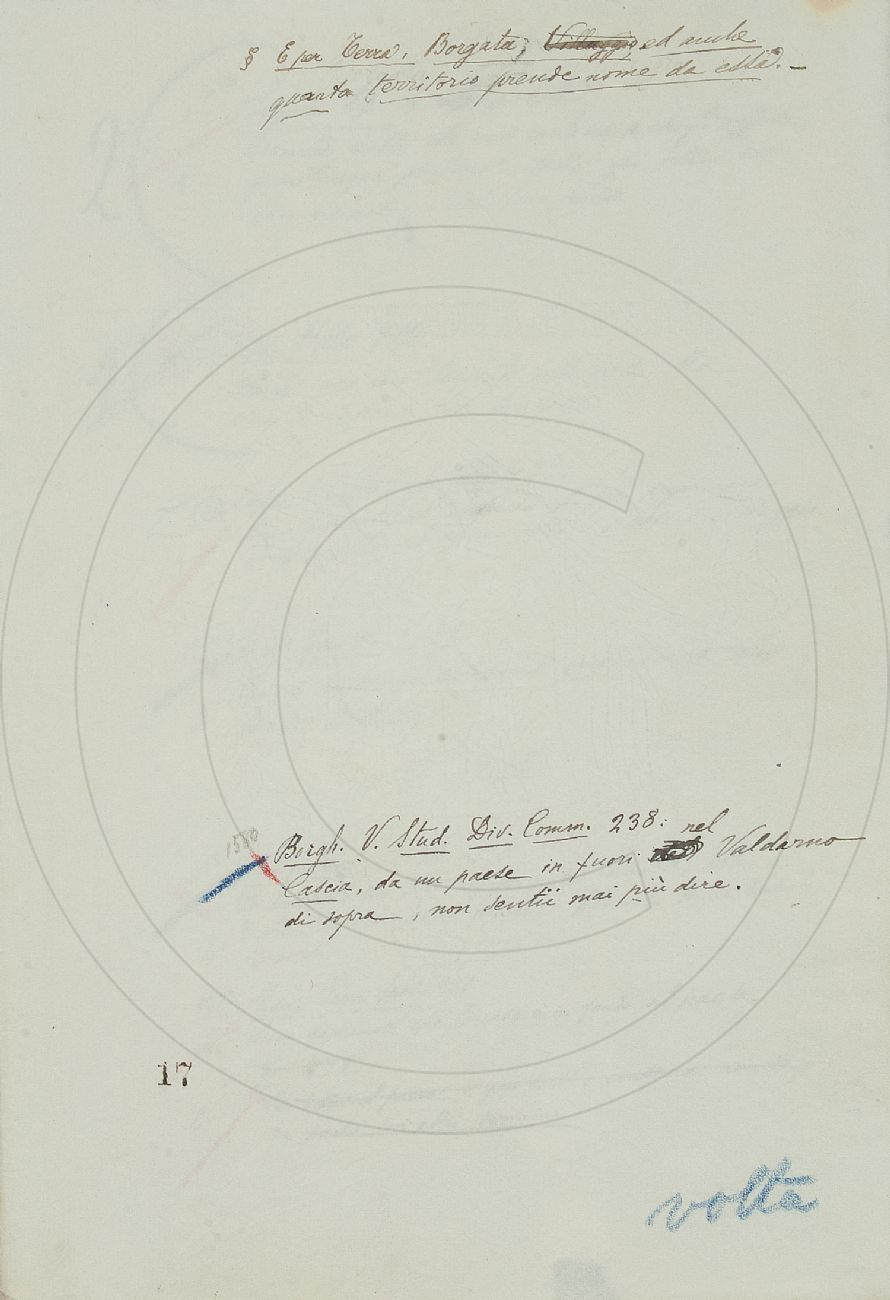 § E per Terra, Borgata, Villaggio ed anche
quanto territorio prende nome da essa. —
1580
Borgh. V. Stud. Div. Comm. 238: nel
Cascia, da un paese in fuori Valdarno
di sopra, non sentii mai più dire.
17
volta